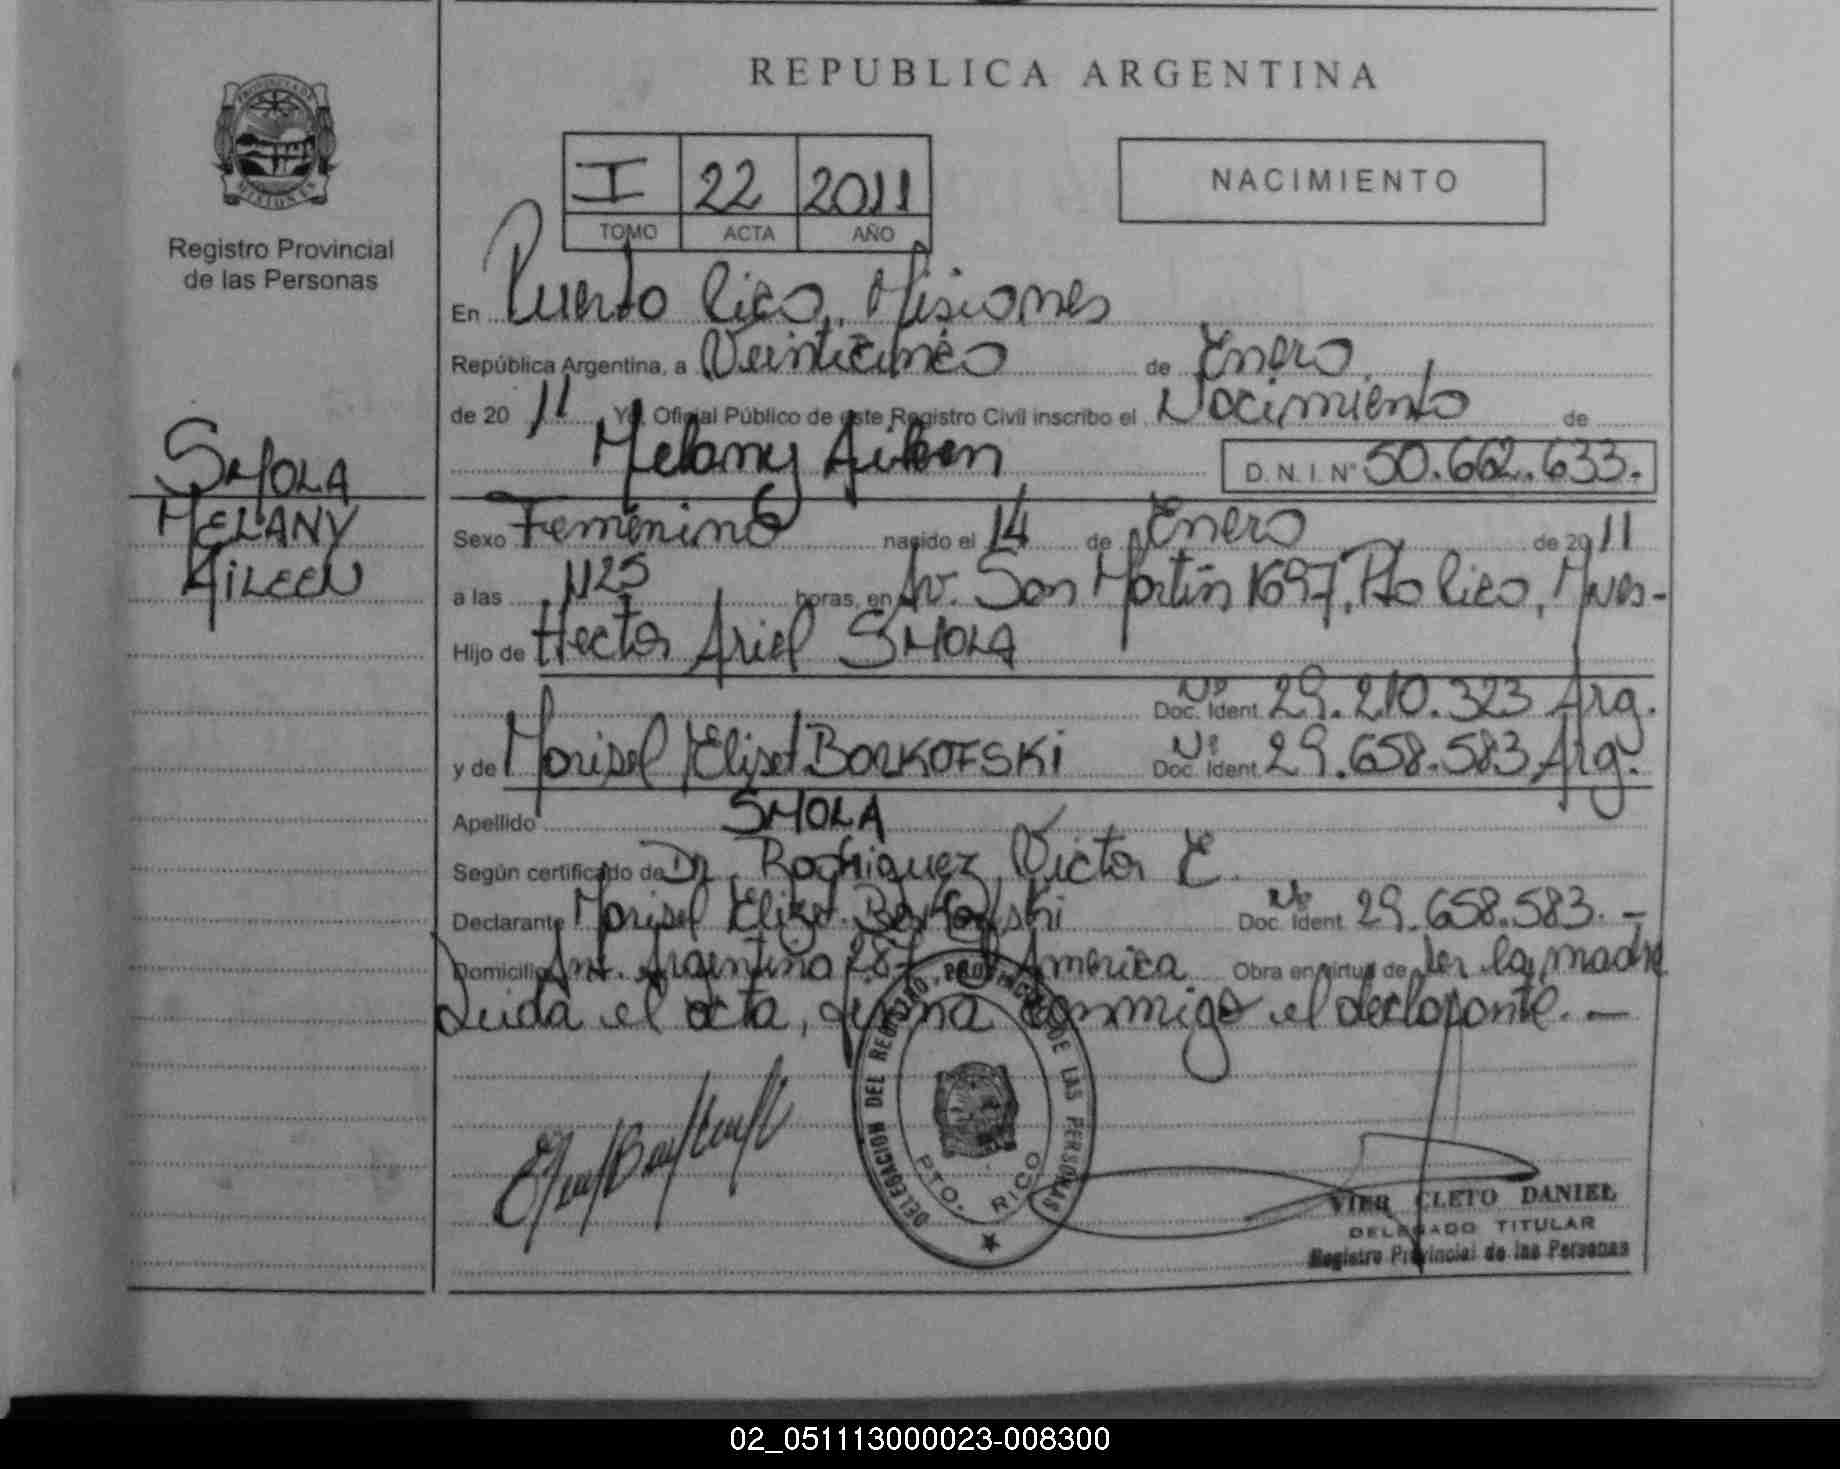 REPUBLICA ARGENTINA
PROVINCIA DE
MISIONES
Registro Provincial
de las Personas
I 22 2011
TOMO ACTA AÑO
NACIMIENTO
En Puerto Rico, Misiones
República Argentina, a Veinticinco de Enero
de 20 11 Yo, Oficial Público de este Registro Civil inscribo el Nacimiento de
Melany Aileen D.N.I. Nº 50.662.633.-
SMOLA
MELANY
AILEEN
Sexo Femenino nacido el 14 de Enero de 2011
a las 1125 horas, en Av. San Martín 1697, Pto Rico, Mnes-
Hijo de Hector Ariel SMOLA
Nº Doc. Ident. 29.210.323 Arg.
y de Marisel Elizet BORKOFSKI Nº Doc. Ident. 29.658.583 Arg.
Apellido SMOLA
Según certificado de Dr. Rodriguez Victor E.
Declarante Marisel Elizet Borkofski Nº Doc. Ident. 29.658.583.-
Domicilio Ant. Argentina 287 America Obra en virtud de ser la madre
Leida el acta, firma conmigo el declarante.-
DELEGACION DEL REGISTRO PROVINCIAL DE LAS PERSONAS
PTO. RICO
VIER CLETO DANIEL
DELEGADO TITULAR
Registro Provincial de las Personas
02_051113000023-008300